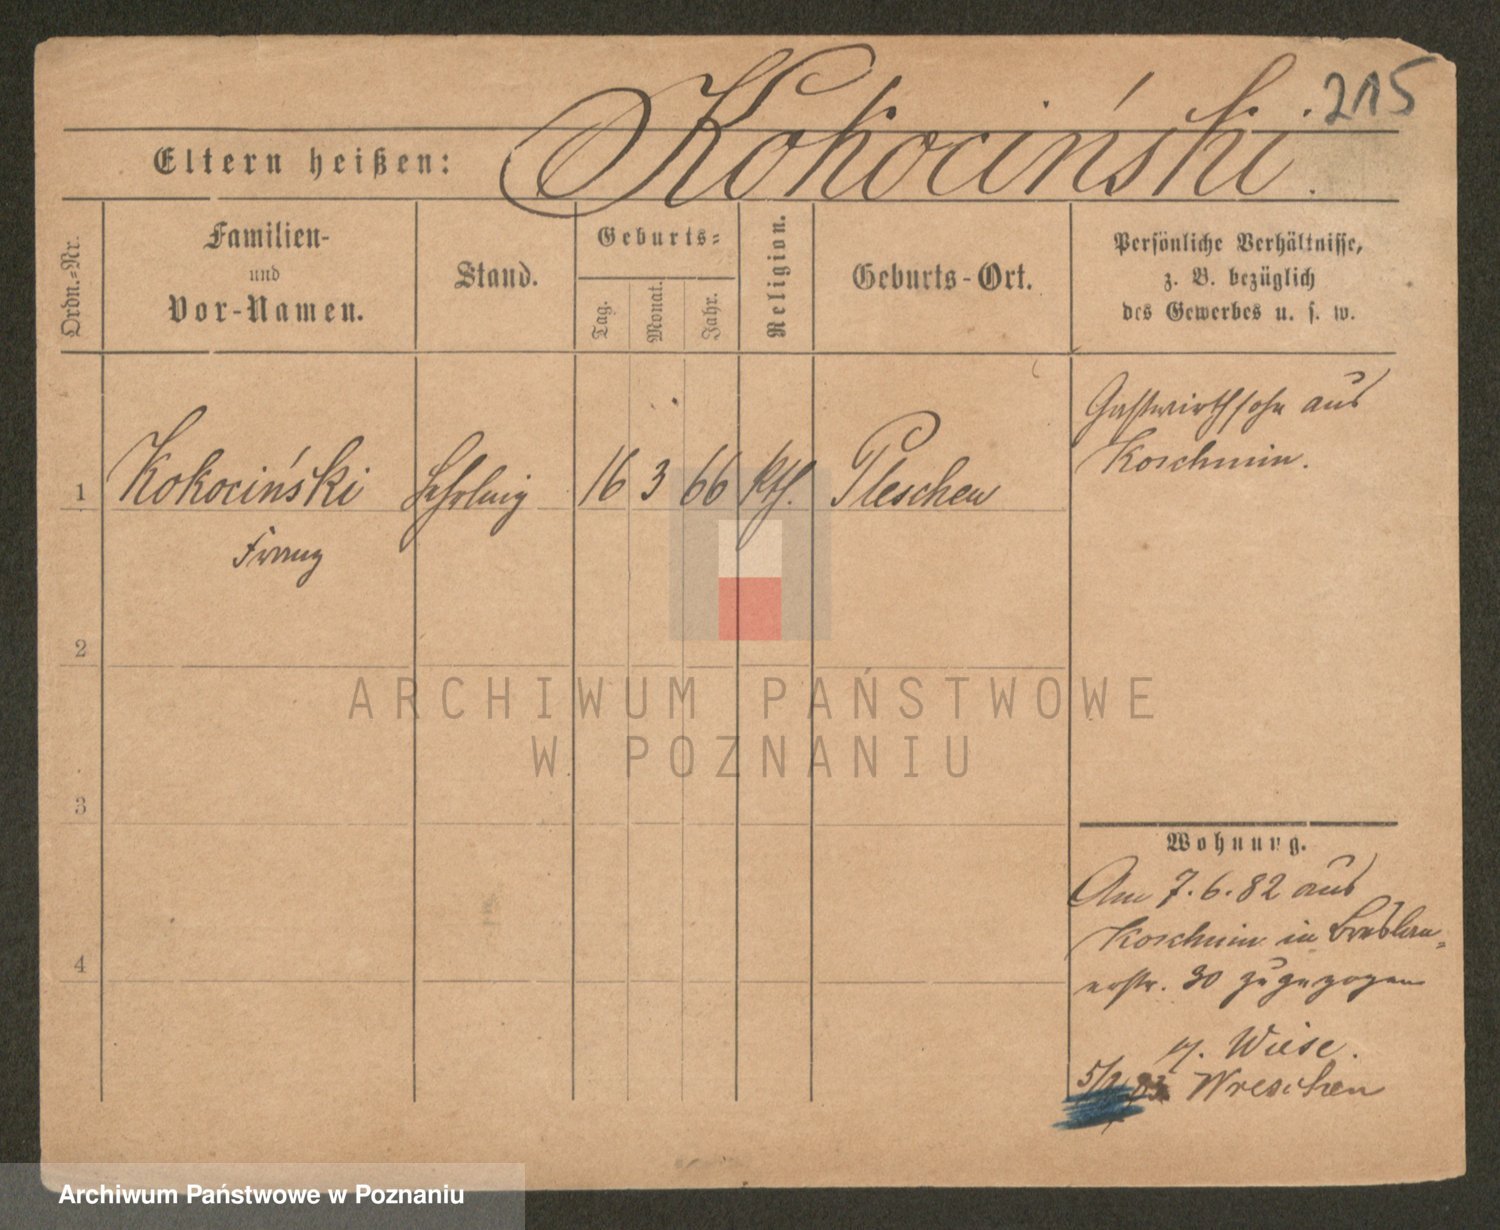 215
Kokociński.
Eltern heißen:
Ordn.=Nr.
Familien-
und
Vor-Namen.
Stand.
Geburts=
Tag.
Monat.
Jahr.
Religion.
Geburts-Ort.
Persönliche Verhältnisse,
z. B. bezüglich
des Gewerbes u. s. w.
1 Kokociński Lehrling 16 3 66 kth. Pleschen
Franz
Gastwirthsohn aus
Koschmin.
2
3
4
Wohnung.
Am 7. 6. 82 aus
Koschmin in Breslau=
erstr. 30 zugezogen
Wiese.
83 Wreschen
ARCHIWUM PAŃSTWOWE
W POZNANIU
Archiwum Państwowe w Poznaniu